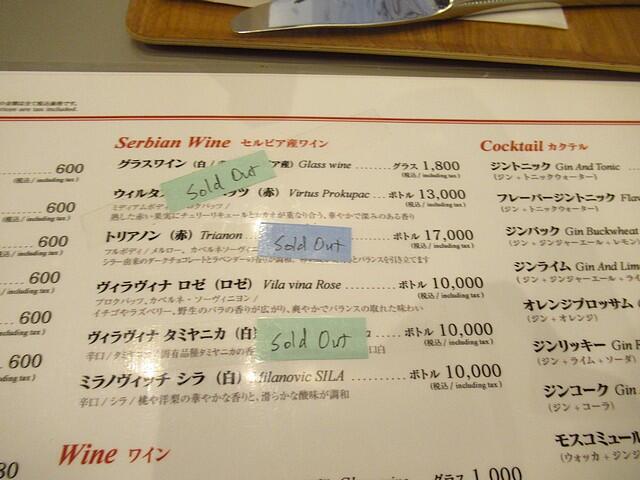 Serbian Wine セルビア産ワイン
グラスワイン（白 産） Glass wine グラス 1,800
（税込 / including tax）
Sold Out
ウィルタ ッツ（赤） Virtus Prokupac ボトル 13,000
（税込 / including tax）
熟した赤い果実にチェリーリキュールとカカオが重なり合う、華やかで深みのある香り
トリアノン（赤） Trianon ボトル 17,000
（税込 / including tax）
Sold Out
フルボディ / メルロー、カベルネソーヴィ
シラー由来のダークチョコレートとラベンダーの香りが調和
ヴィラヴィナ ロゼ（ロゼ） Vila vina Rose ボトル 10,000
（税込 / including tax）
プロクパッツ、カベルネ・ソーヴィニヨン /
イチゴやラズベリー、野生のバラの香りが広がり、爽やかでバランスの取れた味わい
ヴィラヴィナ タミヤニカ（白） ボトル 10,000
（税込 / including tax）
Sold Out
ミラノヴィッチ シラ（白） Milanovic SILA ボトル 10,000
（税込 / including tax）
辛口 / シラ / 桃や洋梨の華やかな香りと、滑らかな酸味が調和
Wine ワイン
グラス 1,000
600
（税込 / including tax）
600
（税込 / including tax）
600
（税込 / including tax）
600
including tax）
600
including tax）
600
including tax）
80
Cocktail カクテル
ジントニック Gin And Tonic
（ジン + トニックウォーター）
フレーバージントニック Flav
（ジン + トニックウォーター）
ジンバック Gin Buckwheat
（ジン + ジンジャーエール + レモン
ジンライム Gin And Lim
（ジン + ジンジャーエール + ライ
オレンジブロッサム
（ジン + オレンジ）
ジンリッキー Gin R
（ジン + ライム + ソーダ）
ジンコーク Gin
（ジン + コーラ）
モスコミュール
（ウォッカ + ジンジ